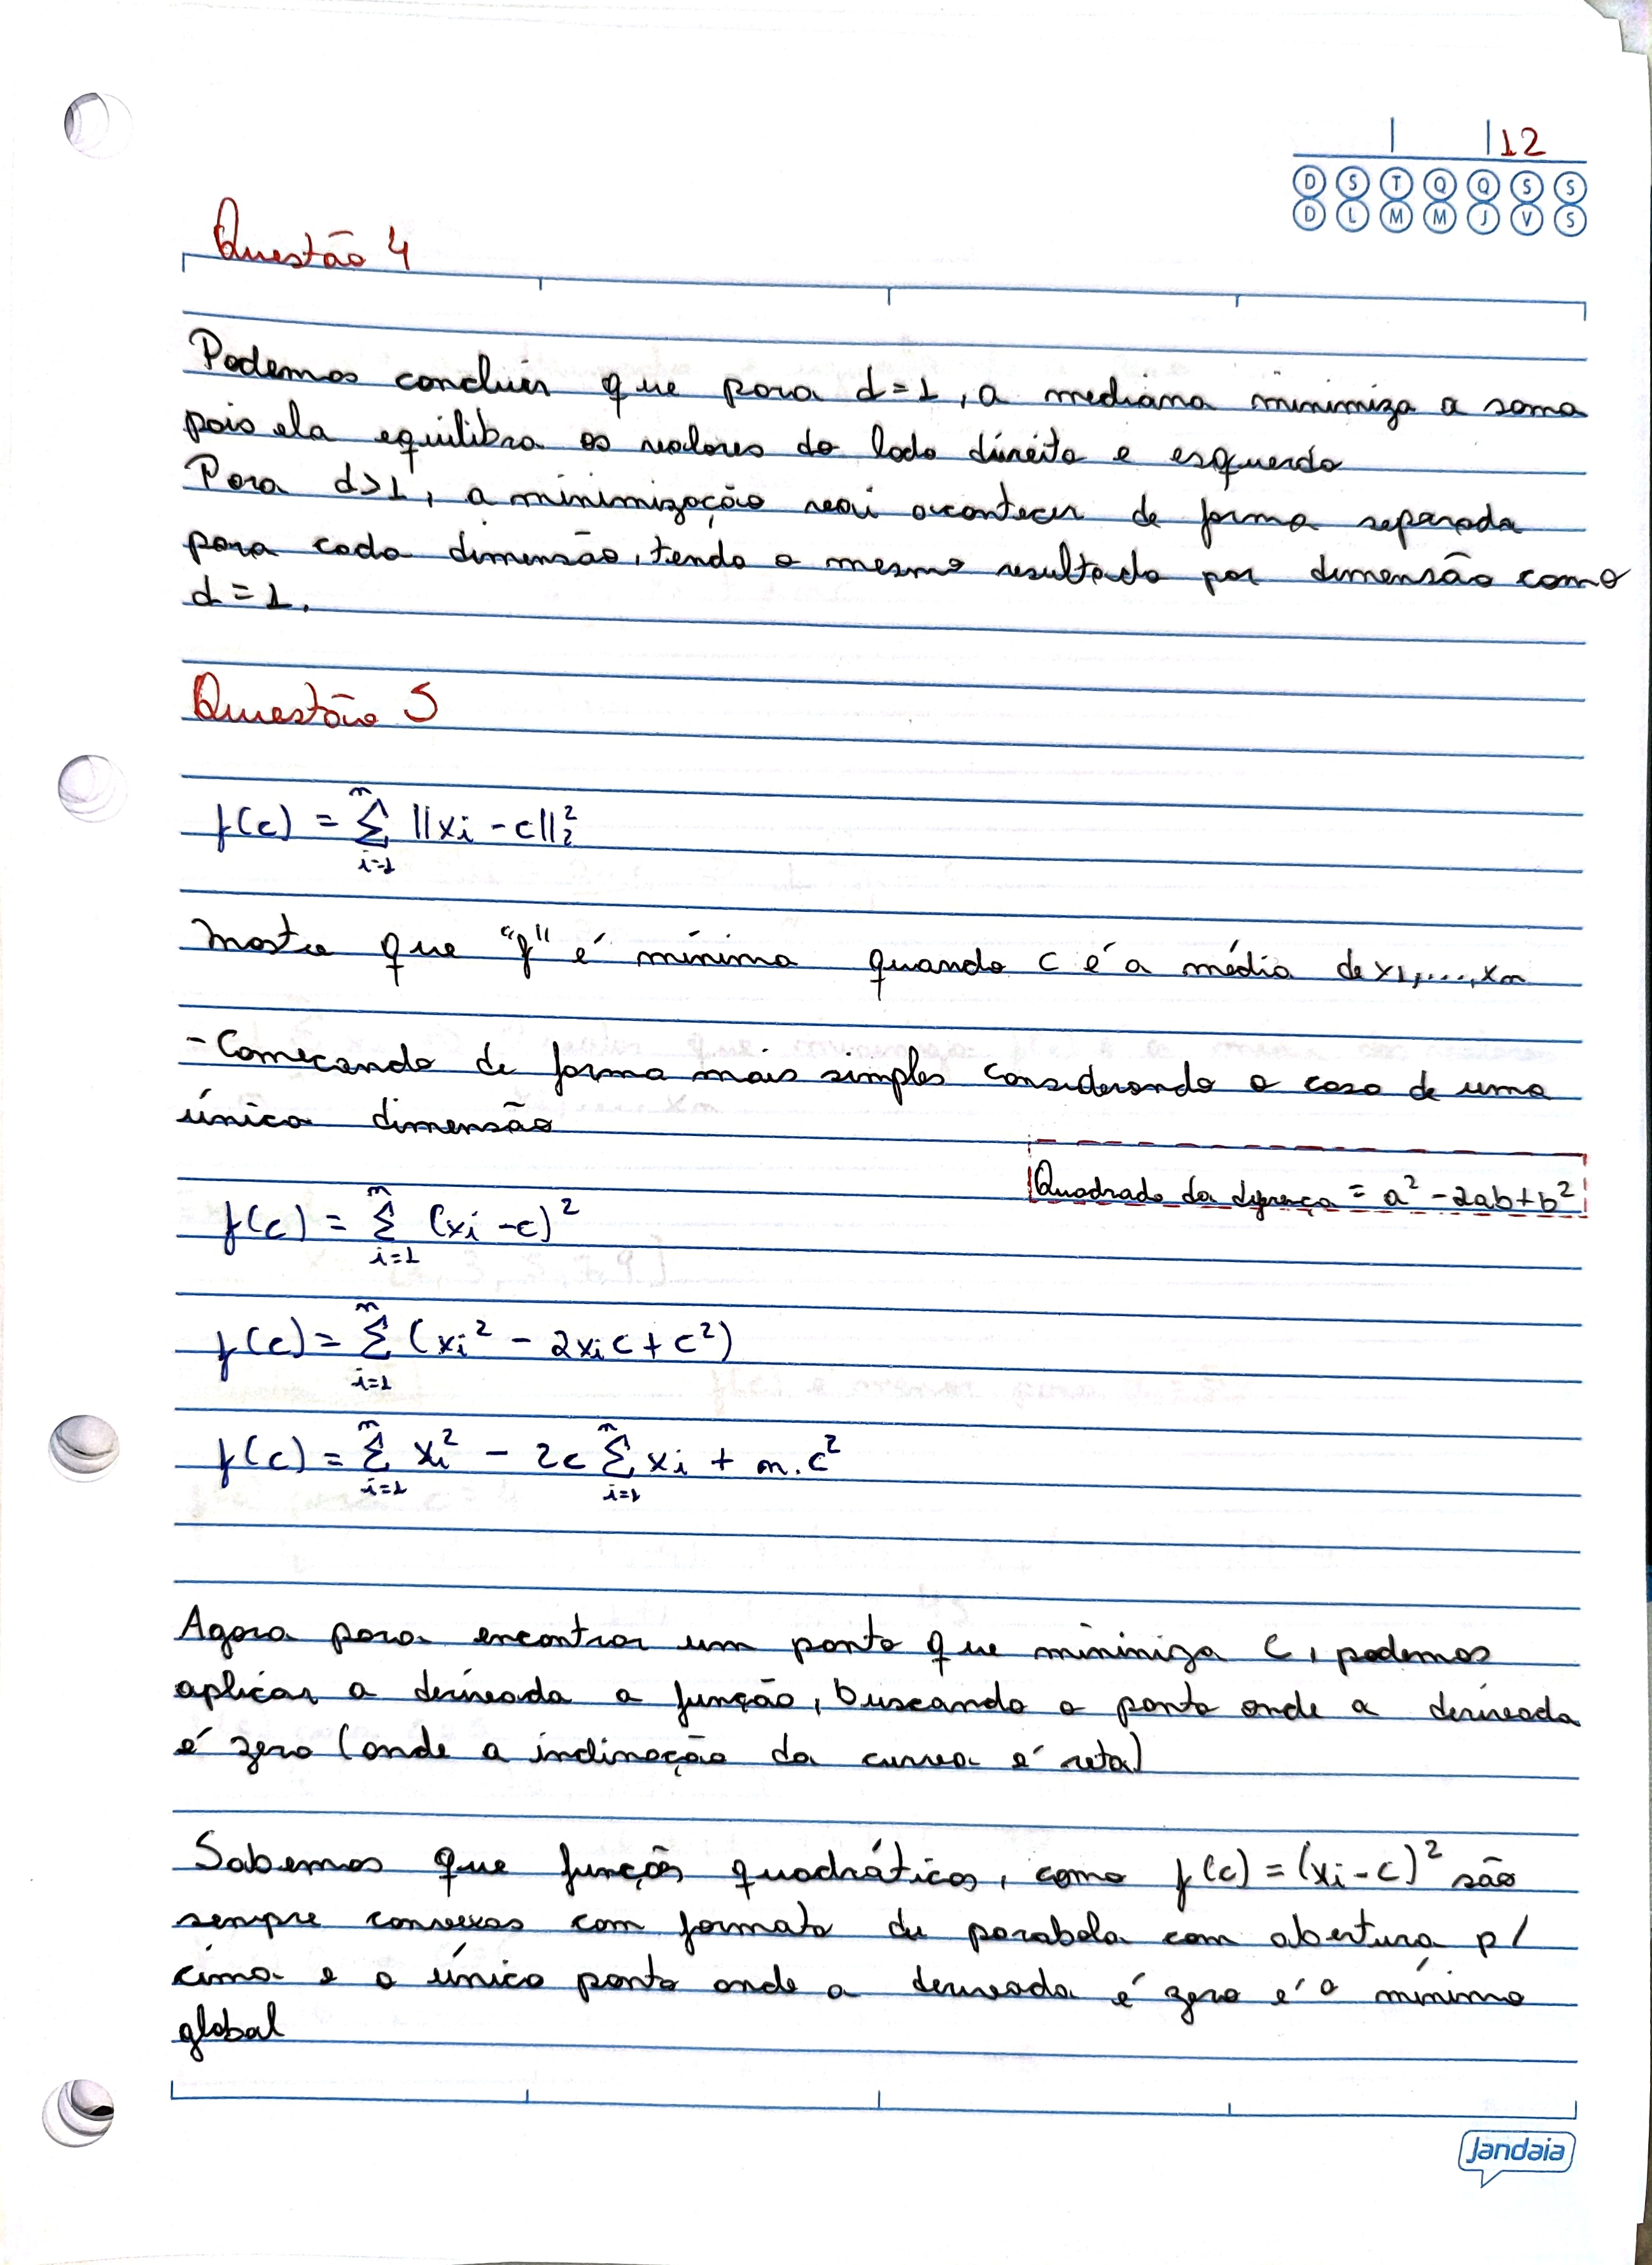 12
D S T Q Q S S
D L M M J V S
Questão 4
Podemos concluir que para d=1, a mediana minimiza a soma
pois ela equilibra os valores do lado direito e esquerdo
Para d>1, a minimização vai acontecer de forma separada
para cada dimensão, tendo o mesmo resultado por dimensão como
d=1.
Questão 5
f(c) = Σ_{i=1}^{n} ||xi - c||₂²
Mostre que "f" é mínima quando c é a média de x1,...,xn
- Começando de forma mais simples considerando o caso de uma
única dimensão
Quadrado da diferença = a² - 2ab + b²
f(c) = Σ_{i=1}^{n} (xi - c)²
f(c) = Σ_{i=1}^{n} (xi² - 2xi c + c²)
f(c) = Σ_{i=1}^{n} xi² - 2c Σ_{i=1}^{n} xi + n.c²
Agora para encontrar um ponto que minimiza C, podemos
aplicar a derivada a função, buscando o ponto onde a derivada
é zero (onde a inclinação da curva é reta)
Sabemos que funções quadráticas, como f(c) = (xi - c)² são
sempre convexas com formato de parabola com abertura p/
cima e o único ponto onde a derivada é zero é o mínimo
global
Jandaia